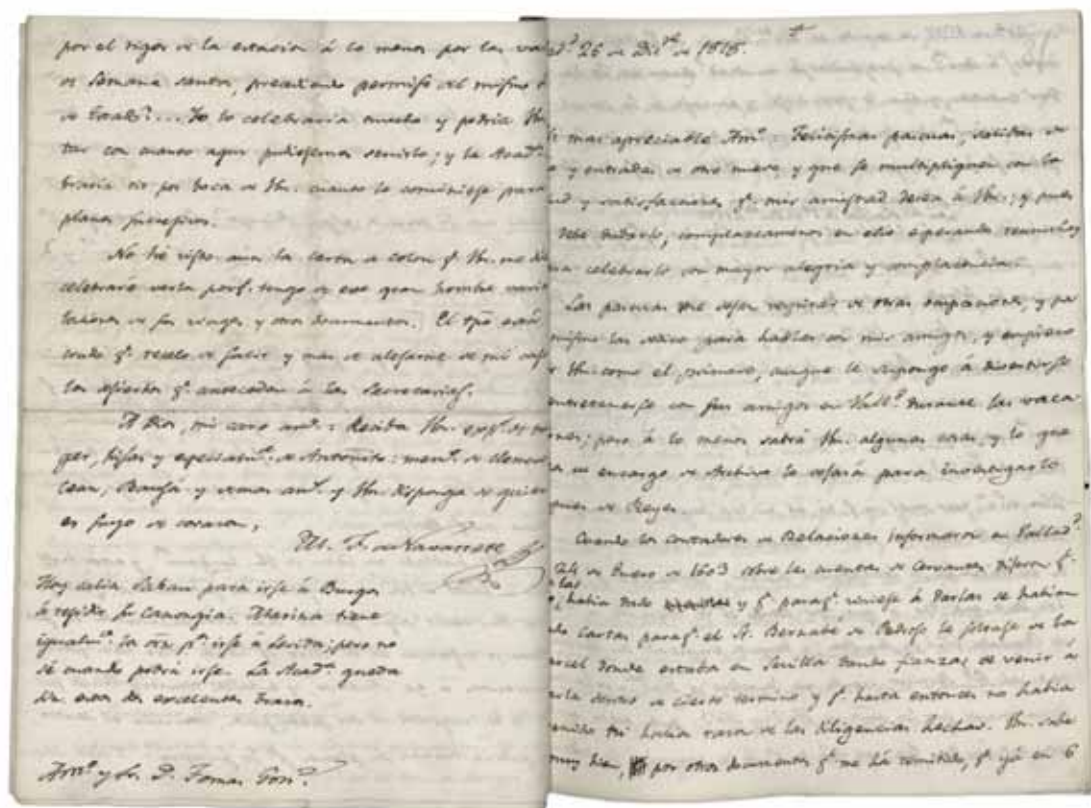 por el rigor de la estacion á lo menos por las va
de Semana santa, precediendo permiso del mismo
de Estado?... Yo lo celebraria mucho y podria Vm.
tar con cuanto aqui pudiesemos servirlo; y la Acad.ª
braria oir por boca de Vm. cuanto le conviniese para
planes sucesivos.
No he visto aun la carta de Colon q.e Vm. me di
celebraré verla porq.e tengo de ese gran hombre varia
de sus viages y otros documentos. El tpo está
crudo q.e recelo de salir y mas de alejarme de mi casa
los desiertos q.e anteceden á las Secretarias.
A Dios, mi caro am.º: Reciba Vm. exp.s de mi
ger, hijas y especialm.te de Antoñito: mem.s de Clemen
Cean, Bauzá y demas am.s y Vm. disponga de quien
es suyo de corazon,
M. F. de Navarrete
Hoy salia Saban para irse á Burgos
á residir su Canongia. Marina tiene
igualm.te la orn p.a irse á Lerida; pero no
sé cuando podrá irse. La Acad.ª queda
sin estos dos excelentes
Am.º y Sr. D. Tomas Gon.z
26 de Dic.re de 1815.
mas apreciable Am.º: Felicisimas pascuas, salidas de
y entradas de otro nuevo y que se multipliquen con la
y satisfacciones q.e mi amistad desea á Vm.; y pues
debe haberlo, complazcamonos en ello esperando reunirnos
celebrarlo con mayor alegria y complacencia.
Las pascuas me dejan respirar de otras ocupaciones, y
las para hablar con mis amigos, y empiezo
Vm. como el primero, aunque le supongo á divertirse
entretenerse con sus amigos en Vall.d durante las vaca
nes; pero á lo menos sabrá Vm. algunas cosas, y lo que
en encargo de Archivo lo dejará para investigarlo
de Reyes.
Cuando los contadores de Relaciones informaron en Vallad.d
24 de Enero de 1603 sobre las cuentas de Cervantes dijeron q.e
las
habia dado y q.e paraq.e viniese á darlas se habian
do cartas paraq.e el Sr. Bernabé de Pedroso le soltase de la
carcel donde estaba en Sevilla dando fianzas de venir á
darla dentro de cierto termino y q.e hasta entonces no habia
venido ni habia razon de las diligencias hechas. Vm. sabe
muy bien, por otros documentos q.e me ha remitido, q.e ya en 6